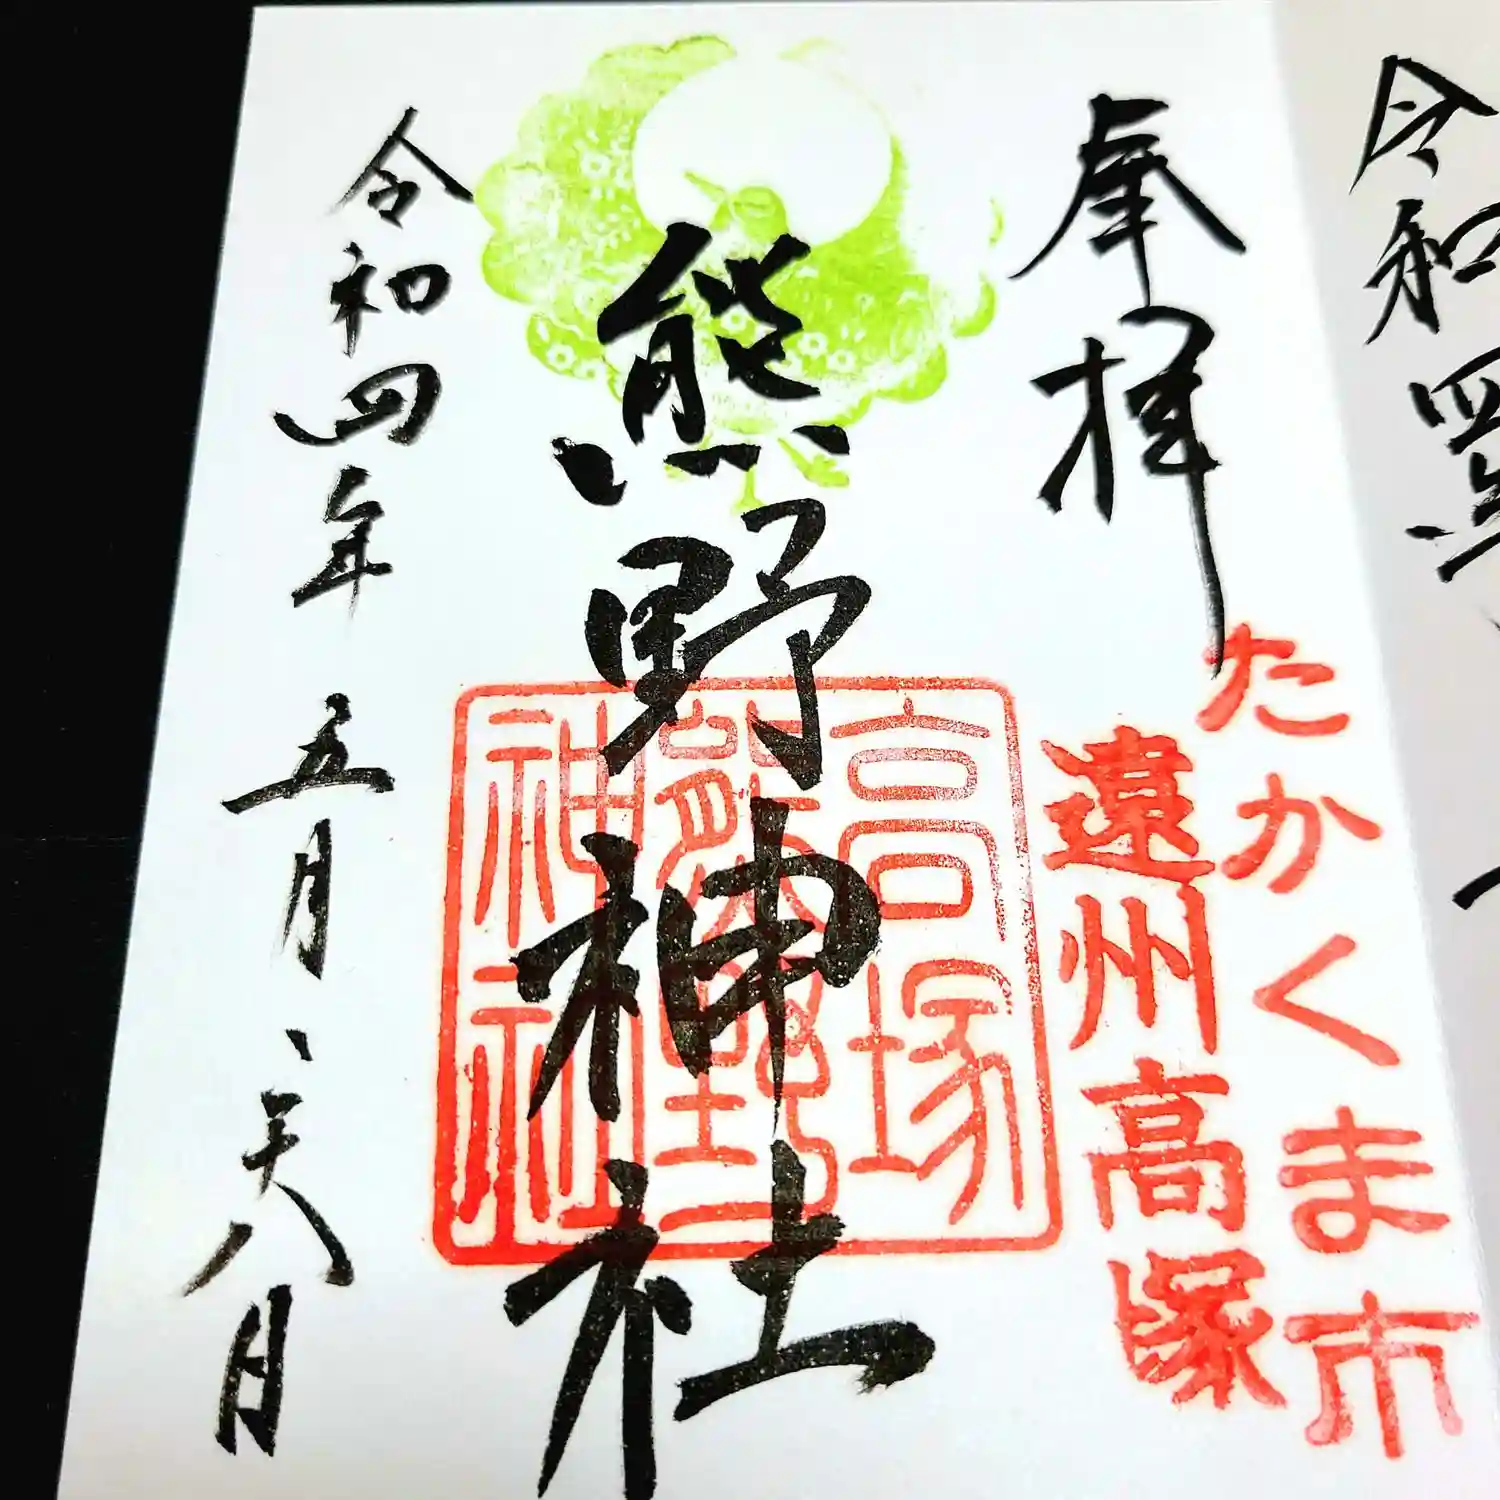 令和四
奉拝
たかくま市
遠州高塚
熊野神社
高塚
熊野
神社
令和四年 五月 二十八日